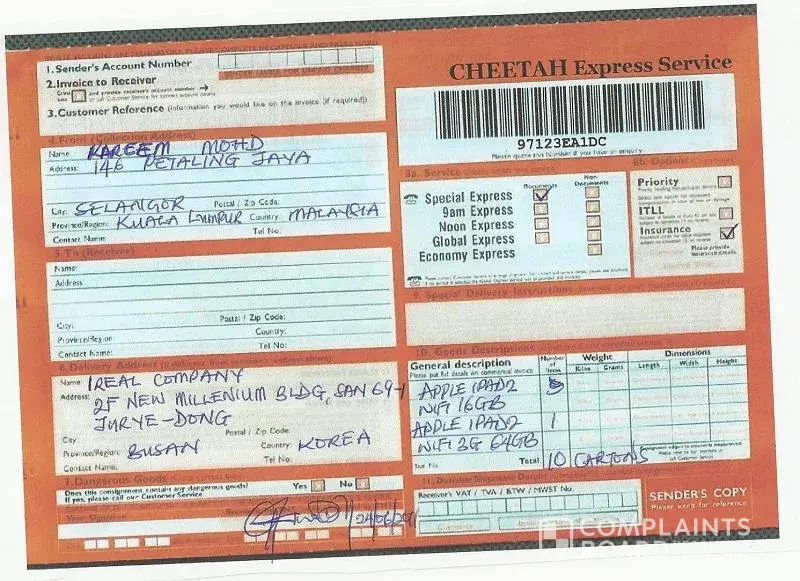 1. Sender's Account Number
2. Invoice to Receiver
3. Customer Reference (information you would like on the invoice (if required))
CHEETAH Express Service
97123EA1DC
Please quote this Number if you have an enquiry
4. From (Collection Address)
Name: KAREEM MOHD
Address: 146 PETALING JAYA
City: SELANGOR Postal / Zip Code:
Province/Region: KUALA LUMPUR Country: MALAYSIA
Contact Name: Tel No:
5. To (Receiver)
Name:
Address
City: Postal / Zip Code:
Province/Region Country:
Contact Name: Tel No:
6. Delivery Address
Name: IREAL COMPANY
Address: 2F NEW MILLENIUM BLDG, SAN 69-1
JURYE-DONG
City Postal / Zip Code:
Province/Region: BUSAN Country: KOREA
Contact Name: Tel No:
7. Dangerous Goods
Does this consignment contain any dangerous goods? Yes No
If yes, please call our Customer Service.
8a. Service
Documents Non Documents
Special Express
9am Express
Noon Express
Global Express
Economy Express
8b. Options
Priority
ITLL
Insurance
Please provide
insurance details
9. Special Delivery Instructions
10. Goods Description
General description Number of Items Weight Dimensions
Please put full details on commercial invoice Kilos Grams Length Width Height
APPLE IPAD2
WIFI 16GB
APPLE IPAD2 1
WIFI 3G 64GB
Total 10 CARTONS
11. Dutiable Shipment
Receiver's VAT / TVA / BTW / MWST No.
SENDER'S COPY
Please keep for reference
COMPLAINTS
BOARD